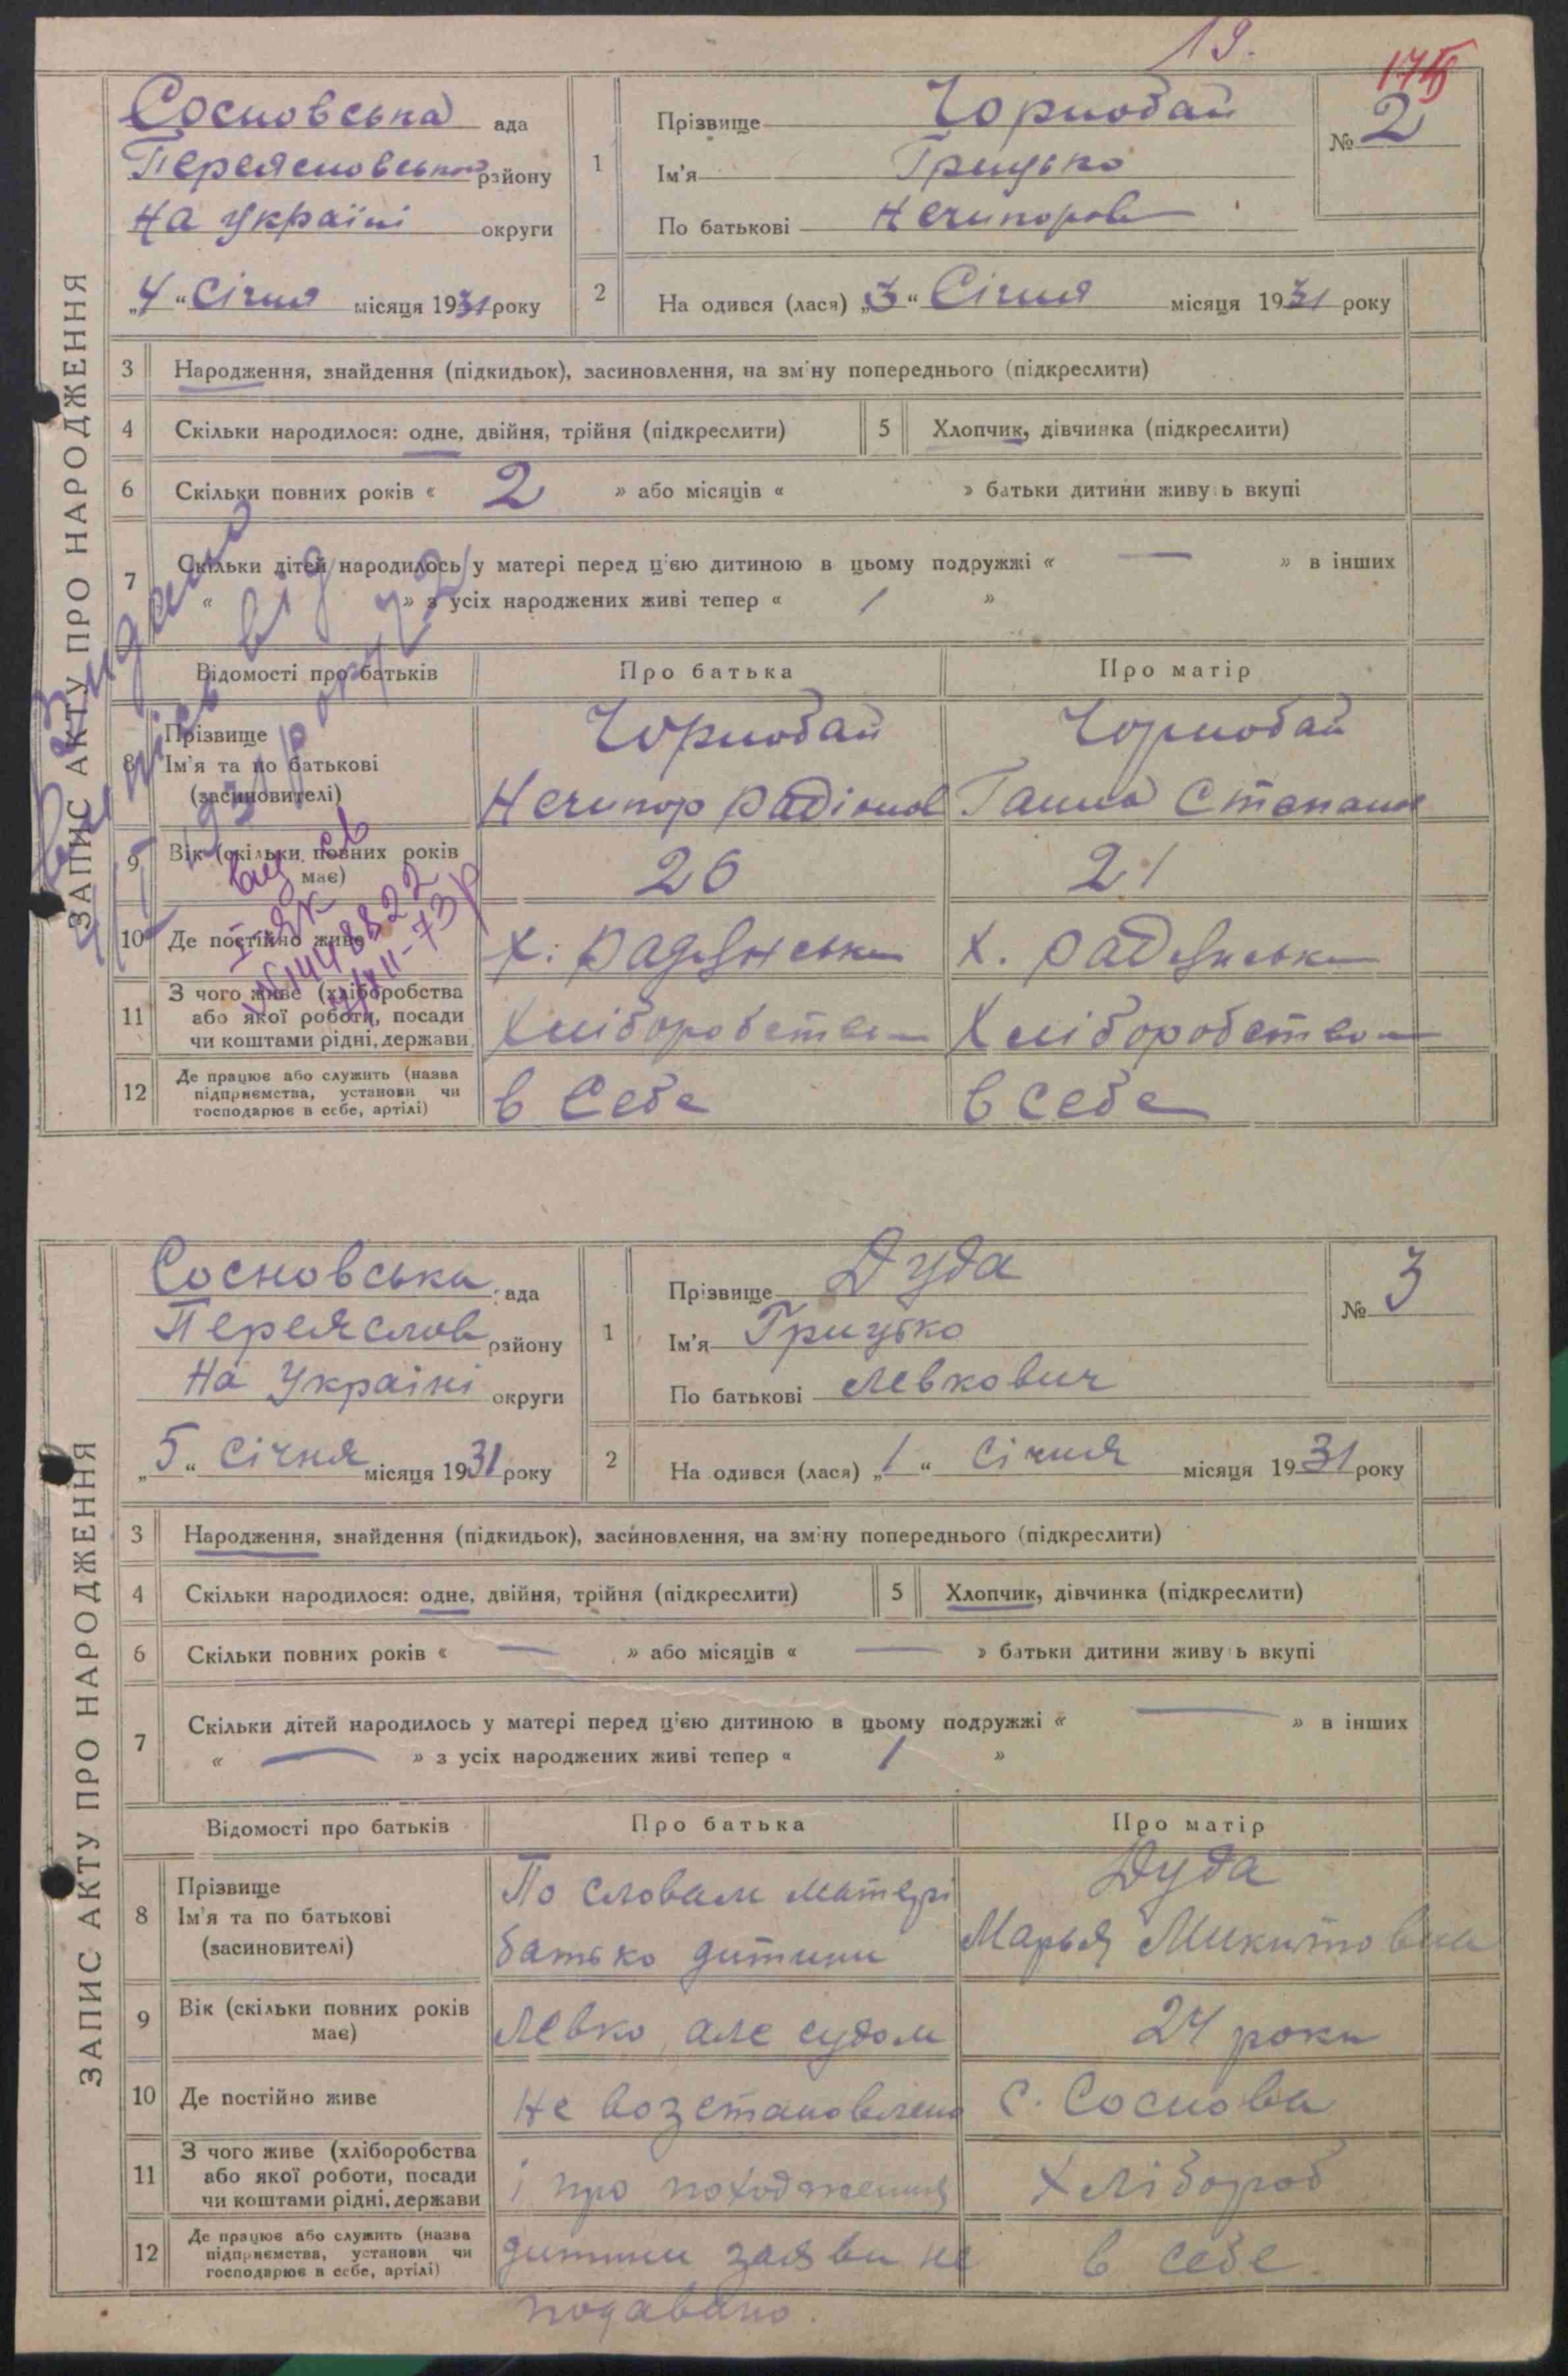 19.
ЗАПИС АКТУ ПРО НАРОДЖЕННЯ
Сосновська ада
Переясловського району
На Україні округи
„4“ Січня місяця 1931 року
1 Прізвище Чорнобай
Ім'я Грицько
По батькові Нечипоров
№ 2
2 На одився (лася) „3“ Січня місяця 1931 року
3 Народження, знайдення (підкидьок), засиновлення, на зміну попереднього (підкреслити)
4 Скільки народилося: одне, двійня, трійня (підкреслити) 5 Хлопчик, дівчинка (підкреслити)
6 Скільки повних років « 2 » або місяців « » батьки дитини живу ь вкупі
7 Скільки дітей народилось у матері перед ц'єю дитиною в цьому подружжі « — » в інших
« » з усіх народжених живі тепер « 1 »
Відомості про батьків Про батька Про матір
8 Прізвище Чорнобай Чорнобай
Ім'я та по батькові
(засиновителі) Нечипор Радіонов Ганна Степанів
9 Вік (скільки повних років 26 21
має)
10 Де постійно живе х. х.
11 З чого живе (хліборобства
або якої роботи, посади Хліборобством Хліборобством
чи коштами рідні, держави
12 Де працює або служить (назва
підприємства, установи чи в Себе в себе
господарює в себе, артілі)
Видано
I-ЯК
№1448822
ЗАПИС АКТУ ПРО НАРОДЖЕННЯ
Сосновська ада
Переяслов району
На Україні округи
„5“ Січня місяця 1931 року
1 Прізвище Дуда
Ім'я Грицько
По батькові Левкович
№ 3
2 На одився (лася) „1“ Січня місяця 1931 року
3 Народження, знайдення (підкидьок), засиновлення, на зміну попереднього (підкреслити)
4 Скільки народилося: одне, двійня, трійня (підкреслити) 5 Хлопчик, дівчинка (підкреслити)
6 Скільки повних років « — » або місяців « — » батьки дитини живу ь вкупі
7 Скільки дітей народилось у матері перед ц'єю дитиною в цьому подружжі « — » в інших
« — » з усіх народжених живі тепер « 1 »
Відомості про батьків Про батька Про матір
8 Прізвище По словам матері Дуда
Ім'я та по батькові
(засиновителі) батько дитини Марья Микитовна
9 Вік (скільки повних років
має) Левко, але судом 24 роки
10 Де постійно живе не возстановлено с. Соснова
11 З чого живе (хліборобства
або якої роботи, посади і про походження Хлібороб
чи коштами рідні, держави
12 Де працює або служить (назва
підприємства, установи чи дитини заяви не в себе
господарює в себе, артілі)
подавано.